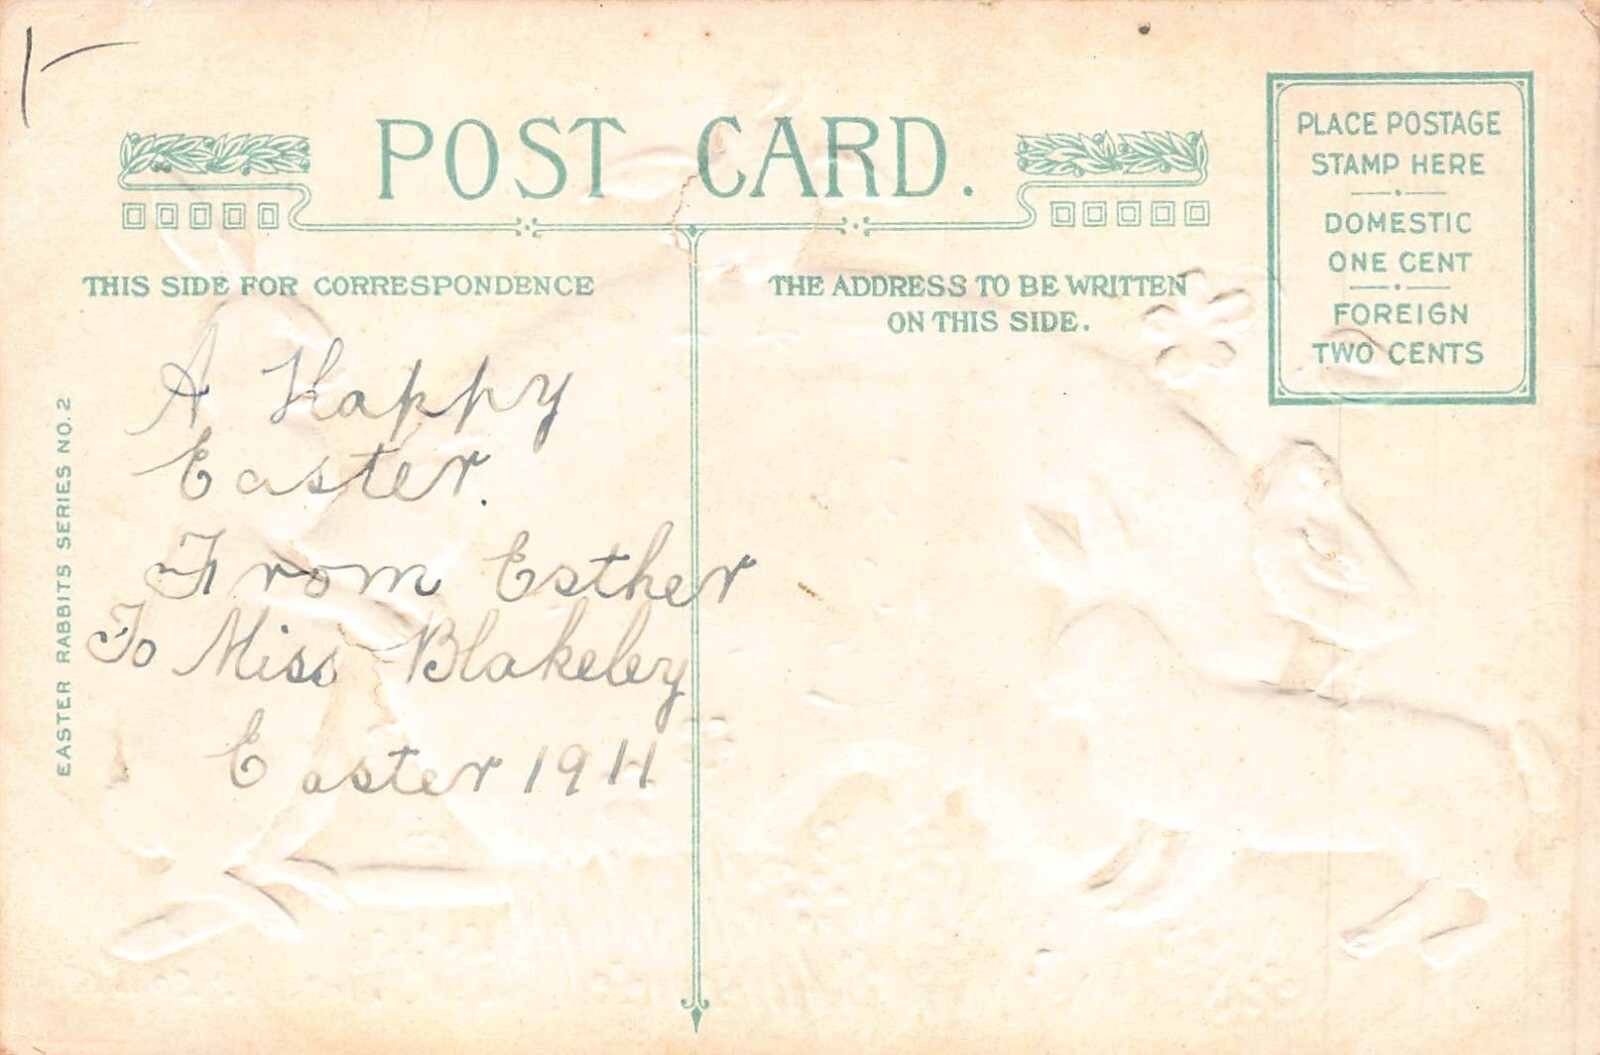 POST CARD.
PLACE POSTAGE
STAMP HERE
DOMESTIC
ONE CENT
FOREIGN
TWO CENTS
THIS SIDE FOR CORRESPONDENCE
THE ADDRESS TO BE WRITTEN
ON THIS SIDE.
A Happy
Easter.
From Esther
To Miss Blakeley
Easter 1911
EASTER RABBITS SERIES NO. 2